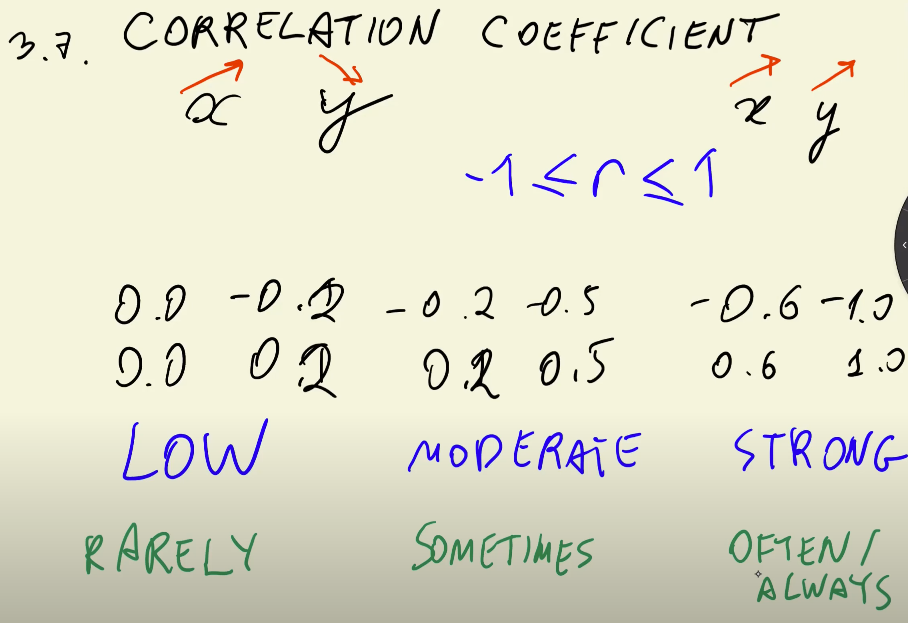 3.7. CORRELATION COEFFICIENT
x y x y
-1 ≤ r ≤ 1
0.0 -0.2 -0.2 -0.5 -0.6 -1.0
0.0 0.2 0.2 0.5 0.6 1.0
LOW MODERATE STRONG
RARELY SOMETIMES OFTEN/
ALWAYS